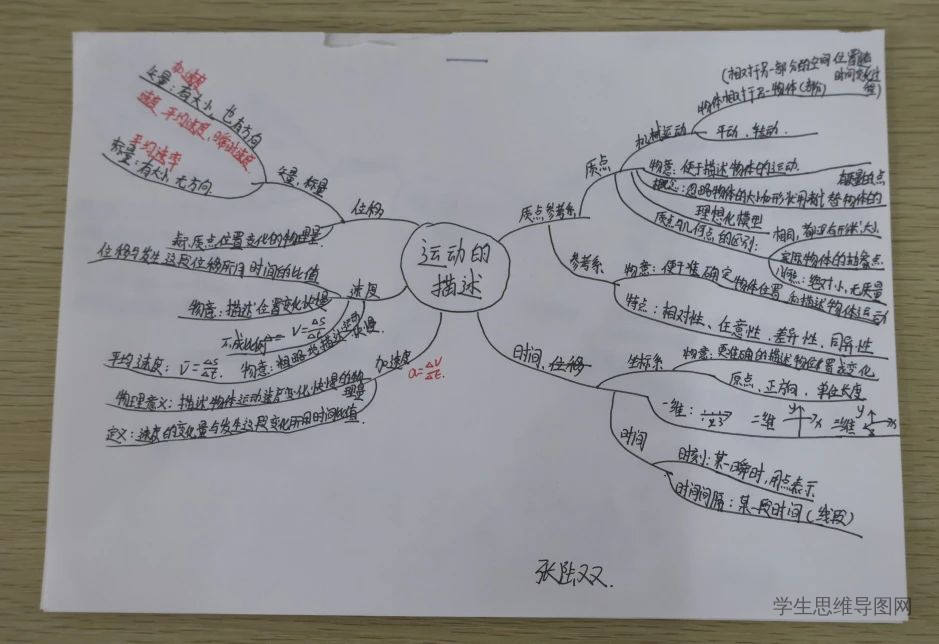 运动的
描述
质点参考系
质点
机械运动
(相对于另一部分的空间位置随
时间变化过
程)
物体相对于另一物体(部分)
平动、转动.
物意:便于描述物体的运动.
概念:忽略物体的大小和形状用来代替物体的
有质量的点
理想化模型
质点与几何点的区别:
相同,都没有形状大小
实际物体的抽象点
几何点:绝对小,无质量
参考系
物意:便于准确定物体位置和描述物体运动
特点:相对性、任意性、差异性、同异性
时间、位移
坐标系
物意:更准确的描述物体位置或变化
原点、正方向、单位长度
一维:
二维
y
x
三维
时间
时刻:某一瞬时,用点表示
时间间隔:某一段时间(线段)
位移
矢量,标量
加速度
矢量:有大小,也有方向
速度,平均速度,瞬时速度
平均速率
标量:有大小,无方向
表示质点位置变化的物理量
速度
位移与发生这段位移所用时间的比值
物意:描述位置变化快慢
V=ΔS/Δt
平均速度:V̄=ΔS/Δt.
物意:粗略地描述运动快慢
加速度
a=ΔV/Δt.
物理意义:描述物体运动速度变化快慢的物
理量
定义:速度的变化量与发生这段变化所用时间比值
张
学生思维导图网